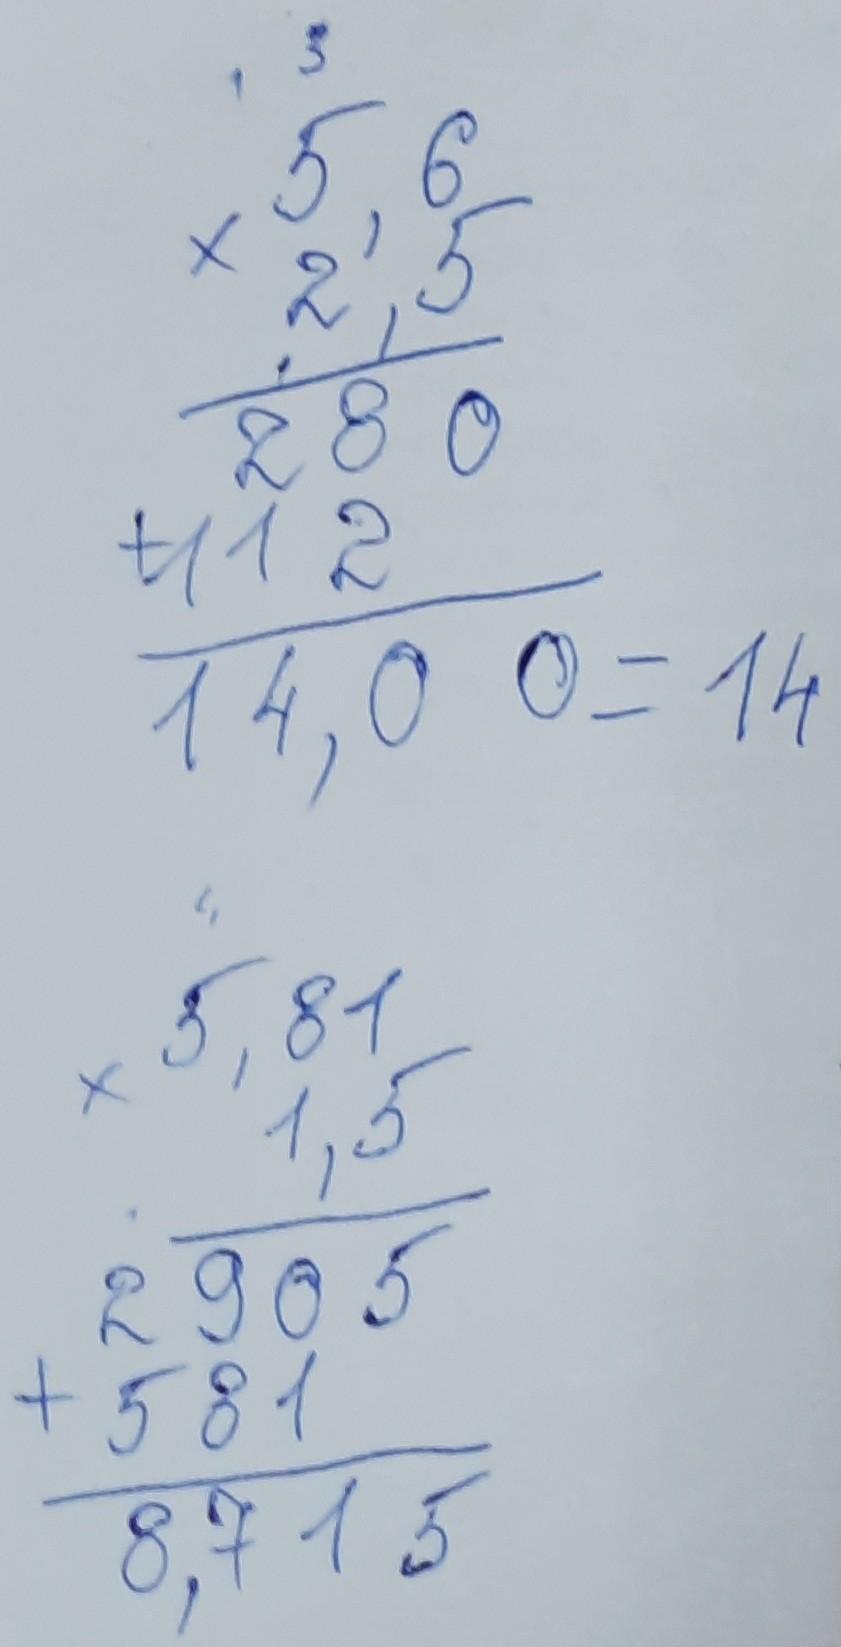 1 3
5,6
× 2,5
280
+112
14,00=14
5,81
× 1,5
2905
+ 581
8,715